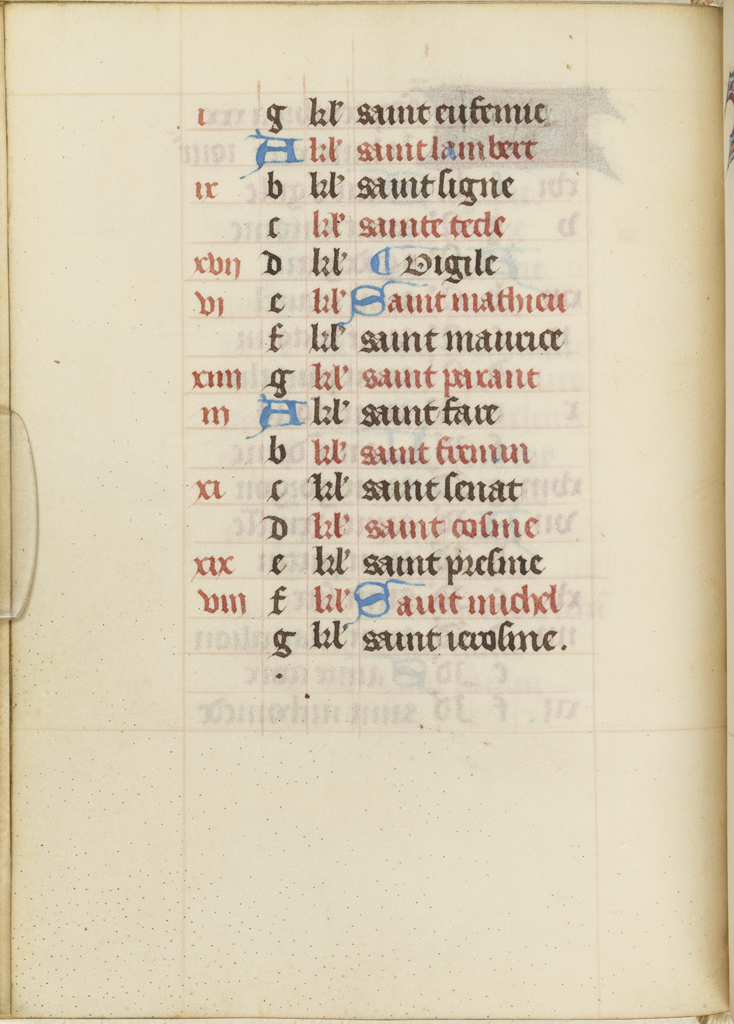 i g kl' saint eufemie
A kl' saint lambert
ix b kl' saint signe
c kl' sainte tecle
xvij d kl' Vigile
vj e kl' Saint mathieu
f kl' saint maurice
xiiij g kl' saint parant
iij A kl' saint fare
b kl' saint firmin
xi c kl' saint senat
d kl' saint cosme
xix e kl' saint presme
viij f kl' Saint michel
g kl' saint ierosme.